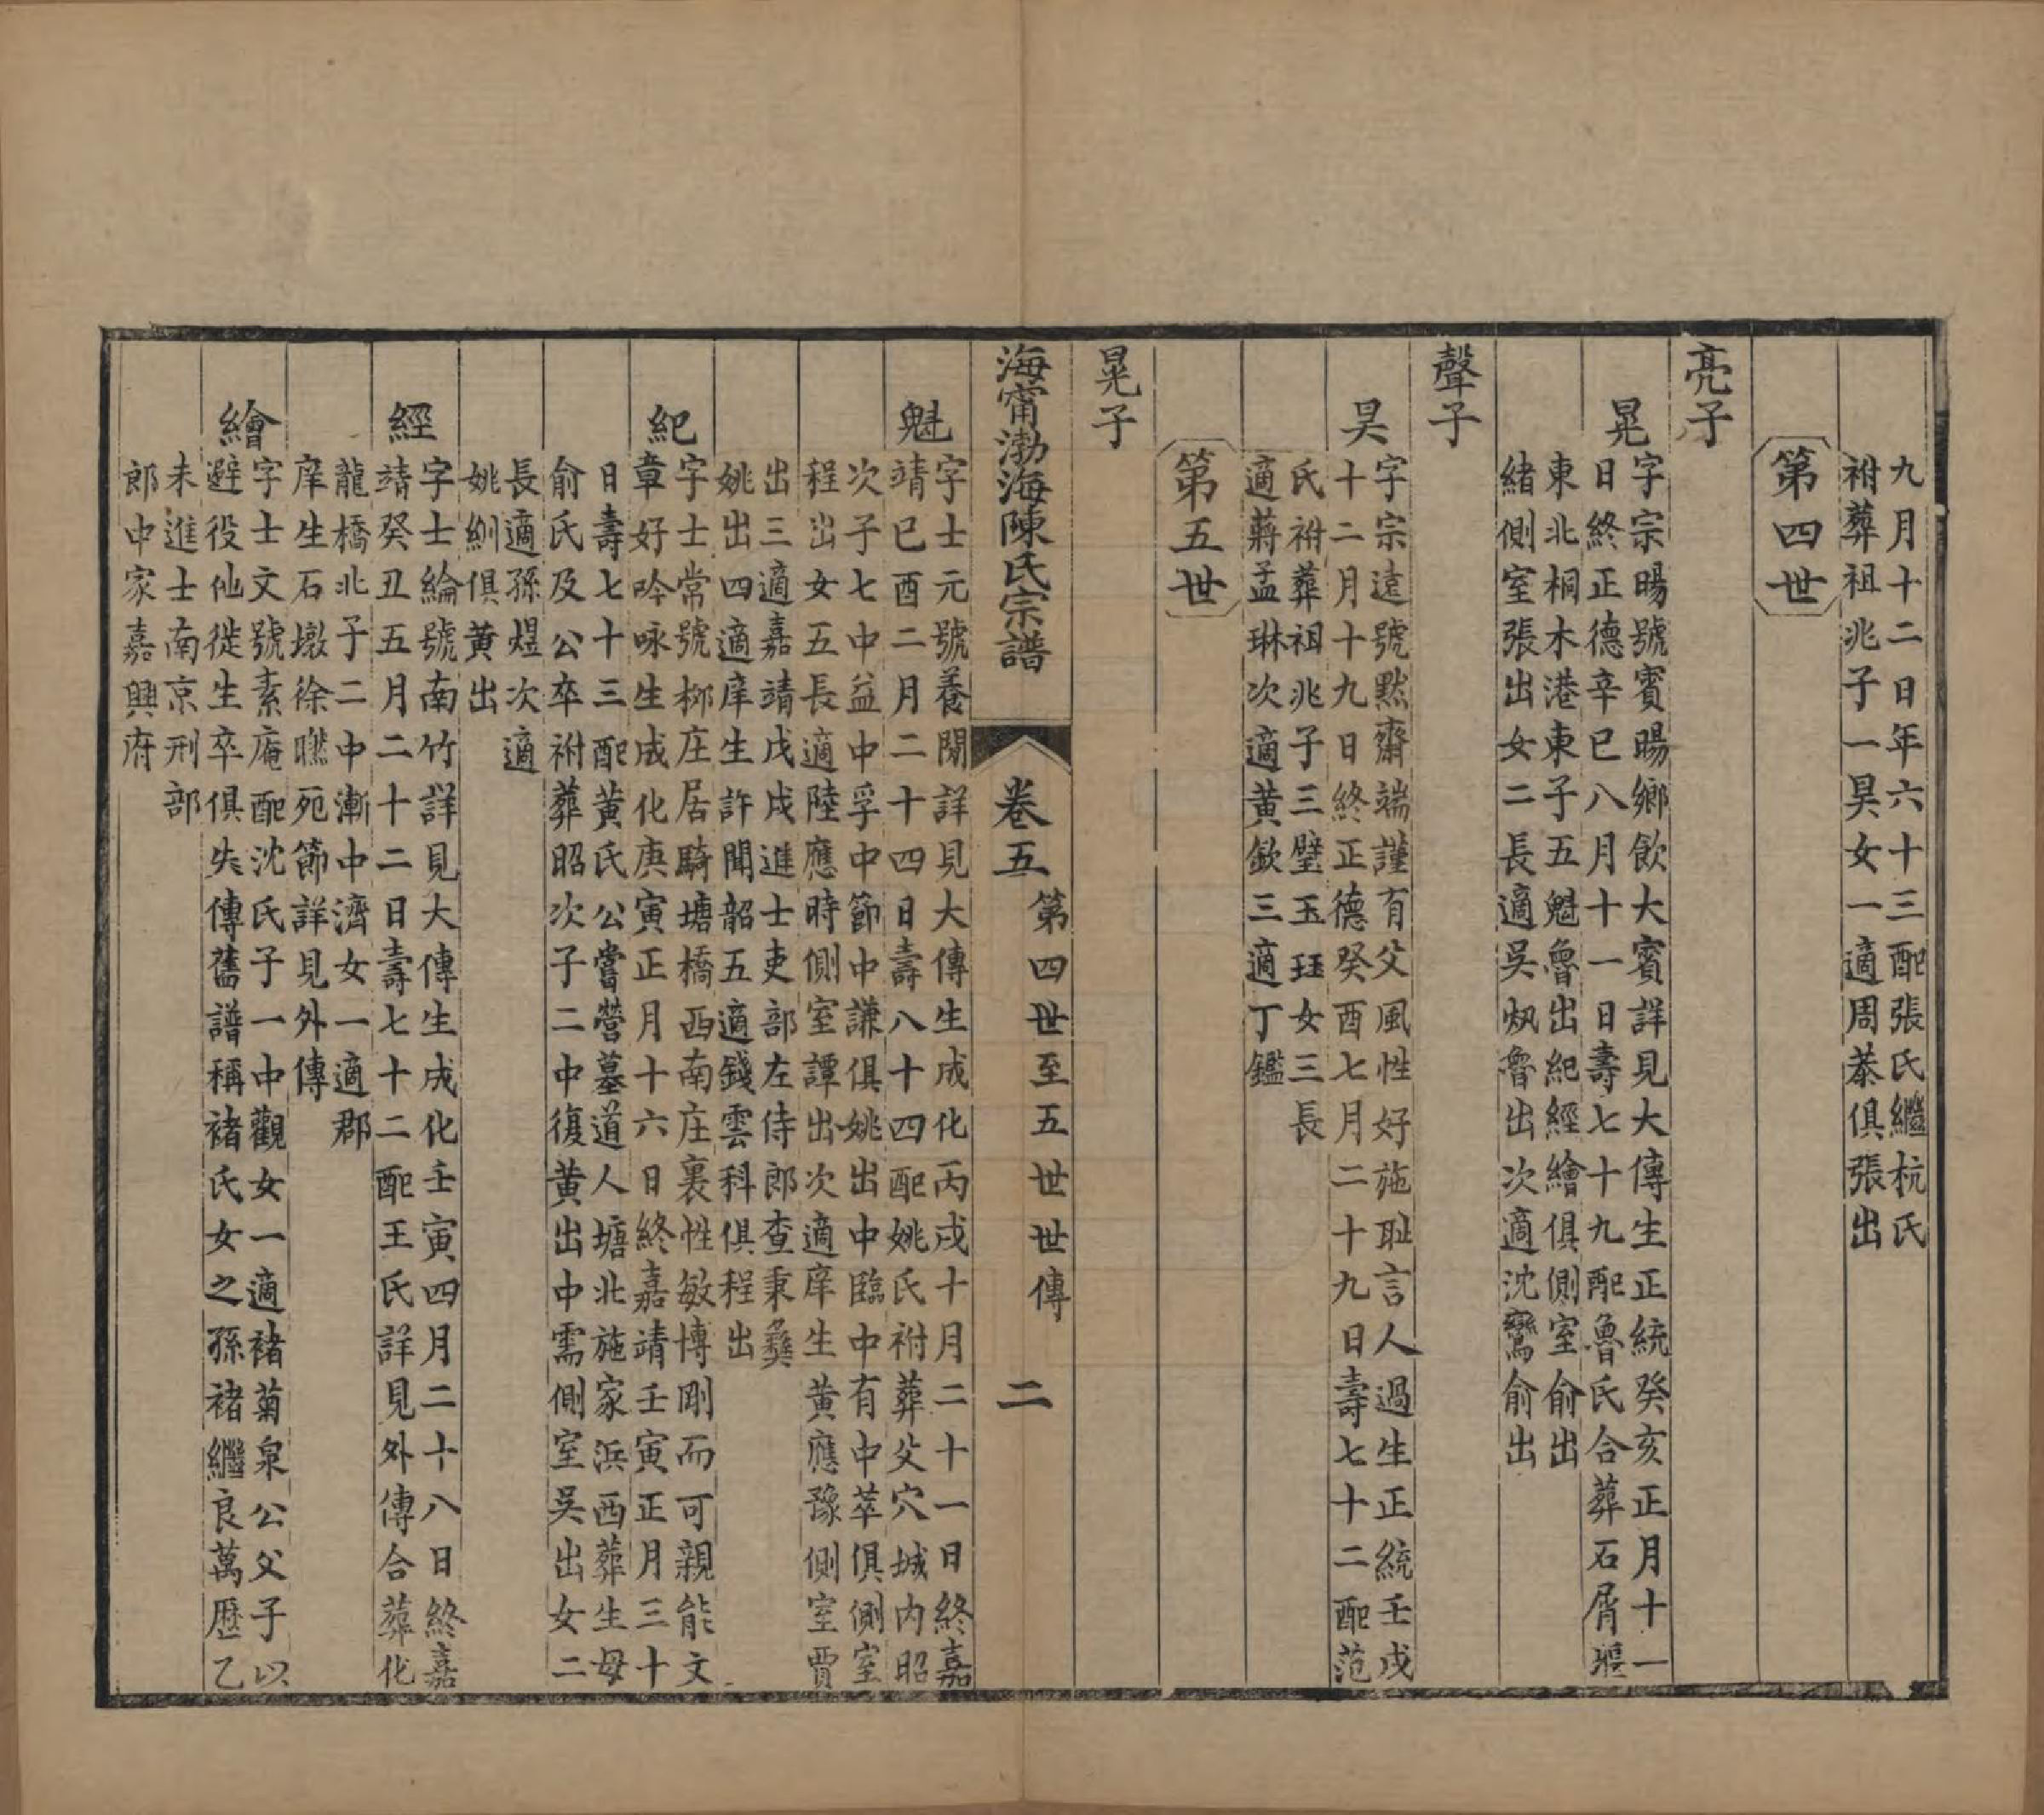 九月十二日年六十三配張氏繼杭氏
祔葬祖兆子一昊女一適周恭俱張出
第四世
亮子
晃
字宗暘號賓暘鄉飲大賓詳見大傳生正統癸亥正月十一
日終正德辛巳八月十一日壽七十九配魯氏合葬石屑堰
東北桐木港東子五魁魯出紀經繪俱側室俞出
緒側室張出女二長適吳㶡魯出次適沈鸞俞出
聲子
昊
字宗遠號默齋端謹有父風性好施恥言人過生正統壬戌
十二月十九日終正德癸酉七月二十九日壽七十二配范
氏祔葬祖兆子三璧玉珏女三長
適蔣孟琳次適黃欽三適丁鑑
第五世
晃子
海甯渤海陳氏宗譜
卷五
第四世至五世世傳
二
魁
字士元號養閒詳見大傳生成化丙戌十月二十一日終嘉
靖己酉二月二十四日壽八十四配姚氏祔葬父穴城內昭
次子七中益中孚中節中謙俱姚出中臨中有中萃俱側室
程出女五長適陸應時側室譚出次適庠生黃應豫側室賈
出三適嘉靖戊戌進士吏部左侍郎查秉彝
姚出四適庠生許聞韶五適錢雲科俱程出
紀
字士常號柳庄居騎塘橋西南庄裏性敏博剛而可親能文
章好吟咏生成化庚寅正月十六日終嘉靖壬寅正月三十
日壽七十三配黃氏公嘗營墓道人塘北施家浜西葬生母
俞氏及公卒祔葬昭次子二中復黃出中需側室吳出女二
長適孫煜次適
姚紃俱黃出
經
字士綸號南竹詳見大傳生成化壬寅四月二十八日終嘉
靖癸丑五月二十二日壽七十二配王氏詳見外傳合葬化
龍橋北子二中漸中濟女一適郡
庠生石墩徐矋宛節詳見外傳
繪
字士文號素庵配沈氏子一中觀女一適褚菊泉公父子以
避役他徙生卒俱失傳舊譜稱褚氏女之孫褚繼良萬曆乙
未進士南京刑部
郎中家嘉興府